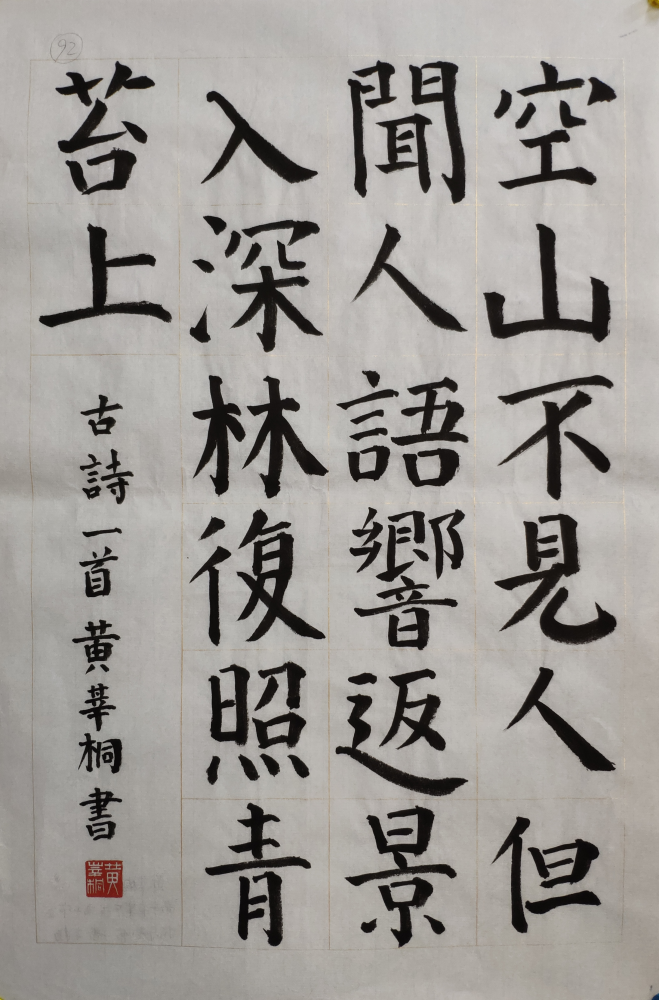 空山不見人但
聞人語響返景
入深林復照青
苔上
古詩一首 黃莘桐書
黃莘桐
92